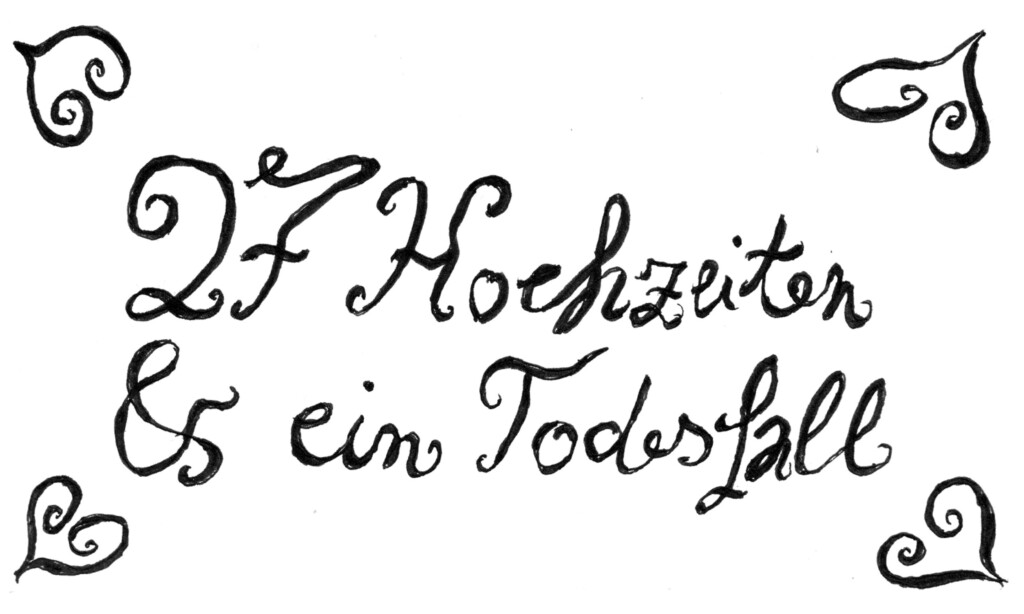 27 Hochzeiten
& ein Todesfall